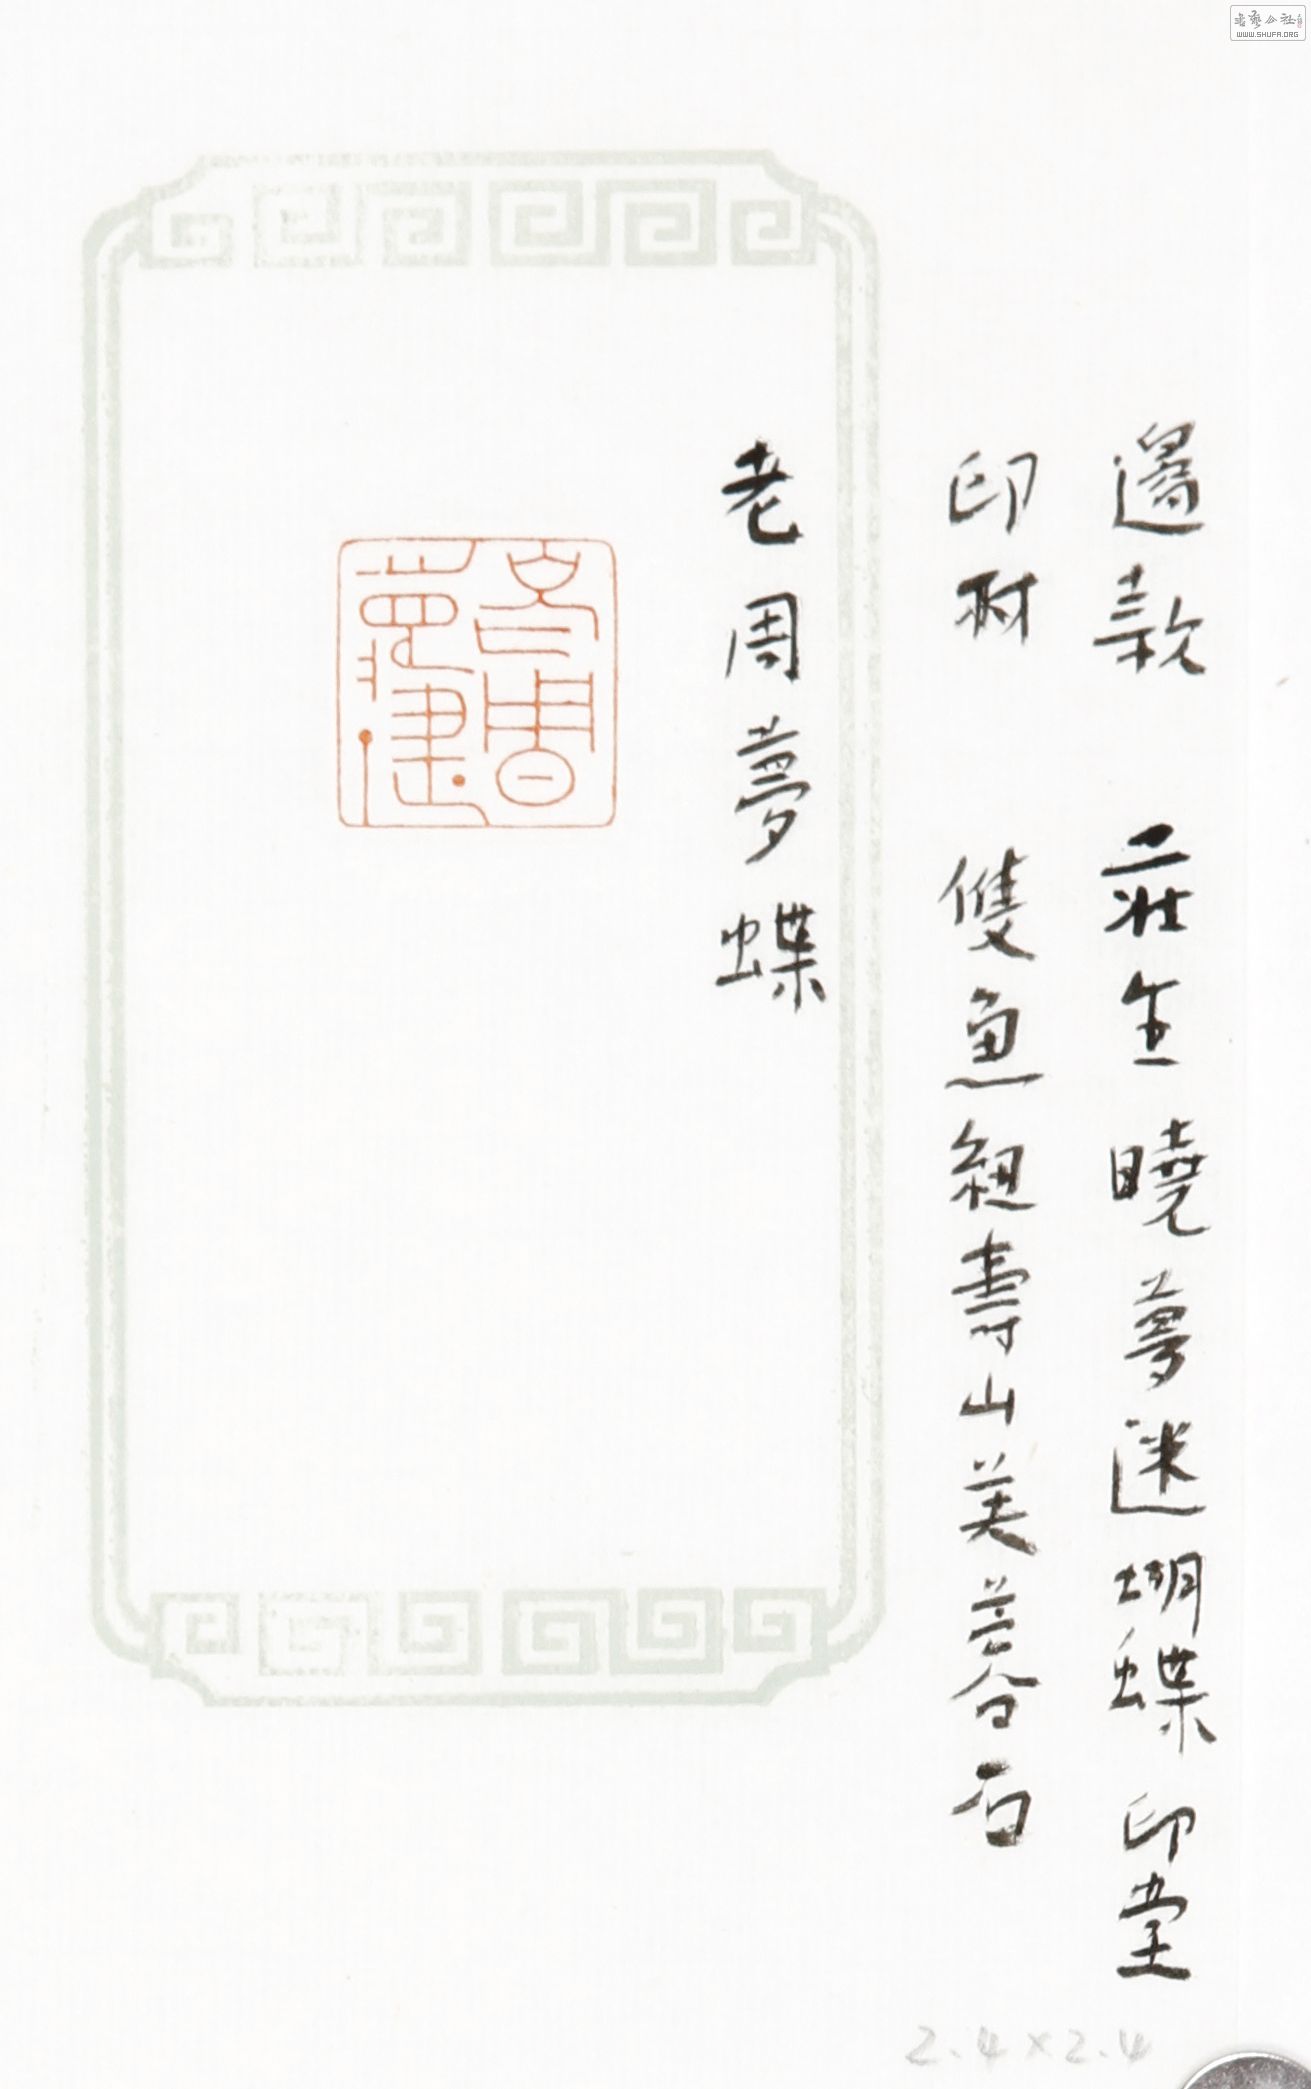 邊款 莊生曉夢迷蝴蝶 印堂
印材 雙魚紐壽山美蓉石
老周夢蝶
2.4×2.4
WWW.SHUFA.ORG